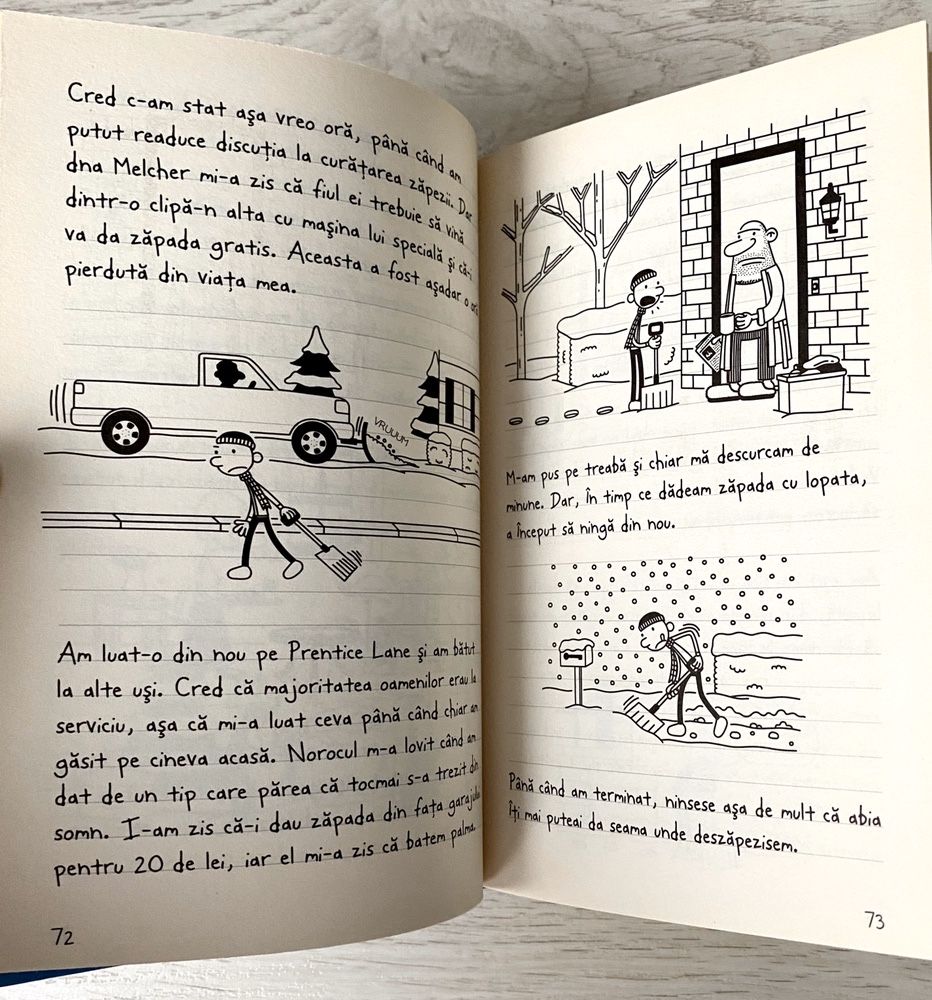 Cred c-am stat așa vreo oră, până când am
putut readuce discuția la curățarea zăpezii. Dar
dna Melcher mi-a zis că fiul ei trebuie să vină
dintr-o clipă-n alta cu mașina lui specială și că-i
va da zăpada gratis. Aceasta a fost așadar o oră
pierdută din viața mea.
VRUUUM
Am luat-o din nou pe Prentice Lane și am bătut
la alte uși. Cred că majoritatea oamenilor erau la
serviciu, așa că mi-a luat ceva până când chiar am
găsit pe cineva acasă. Norocul m-a lovit când am
dat de un tip care părea că tocmai s-a trezit din
somn. I-am zis că-i dau zăpada din fața garajului
pentru 20 de lei, iar el mi-a zis că batem palma.
72
M-am pus pe treabă și chiar mă descurcam de
minune. Dar, în timp ce dădeam zăpada cu lopata,
a început să ningă din nou.
Până când am terminat, ninsese așa de mult că abia
îți mai puteai da seama unde deszăpezisem.
73